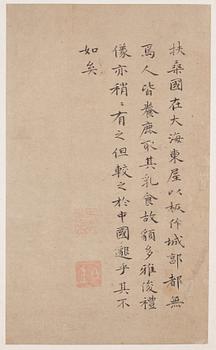 扶桑國在大海東屋以板作城郭都無
馬人皆養鹿取其乳食故貌多雅俊禮
像亦稍〻有之但較之於中國邈乎其不
如矣